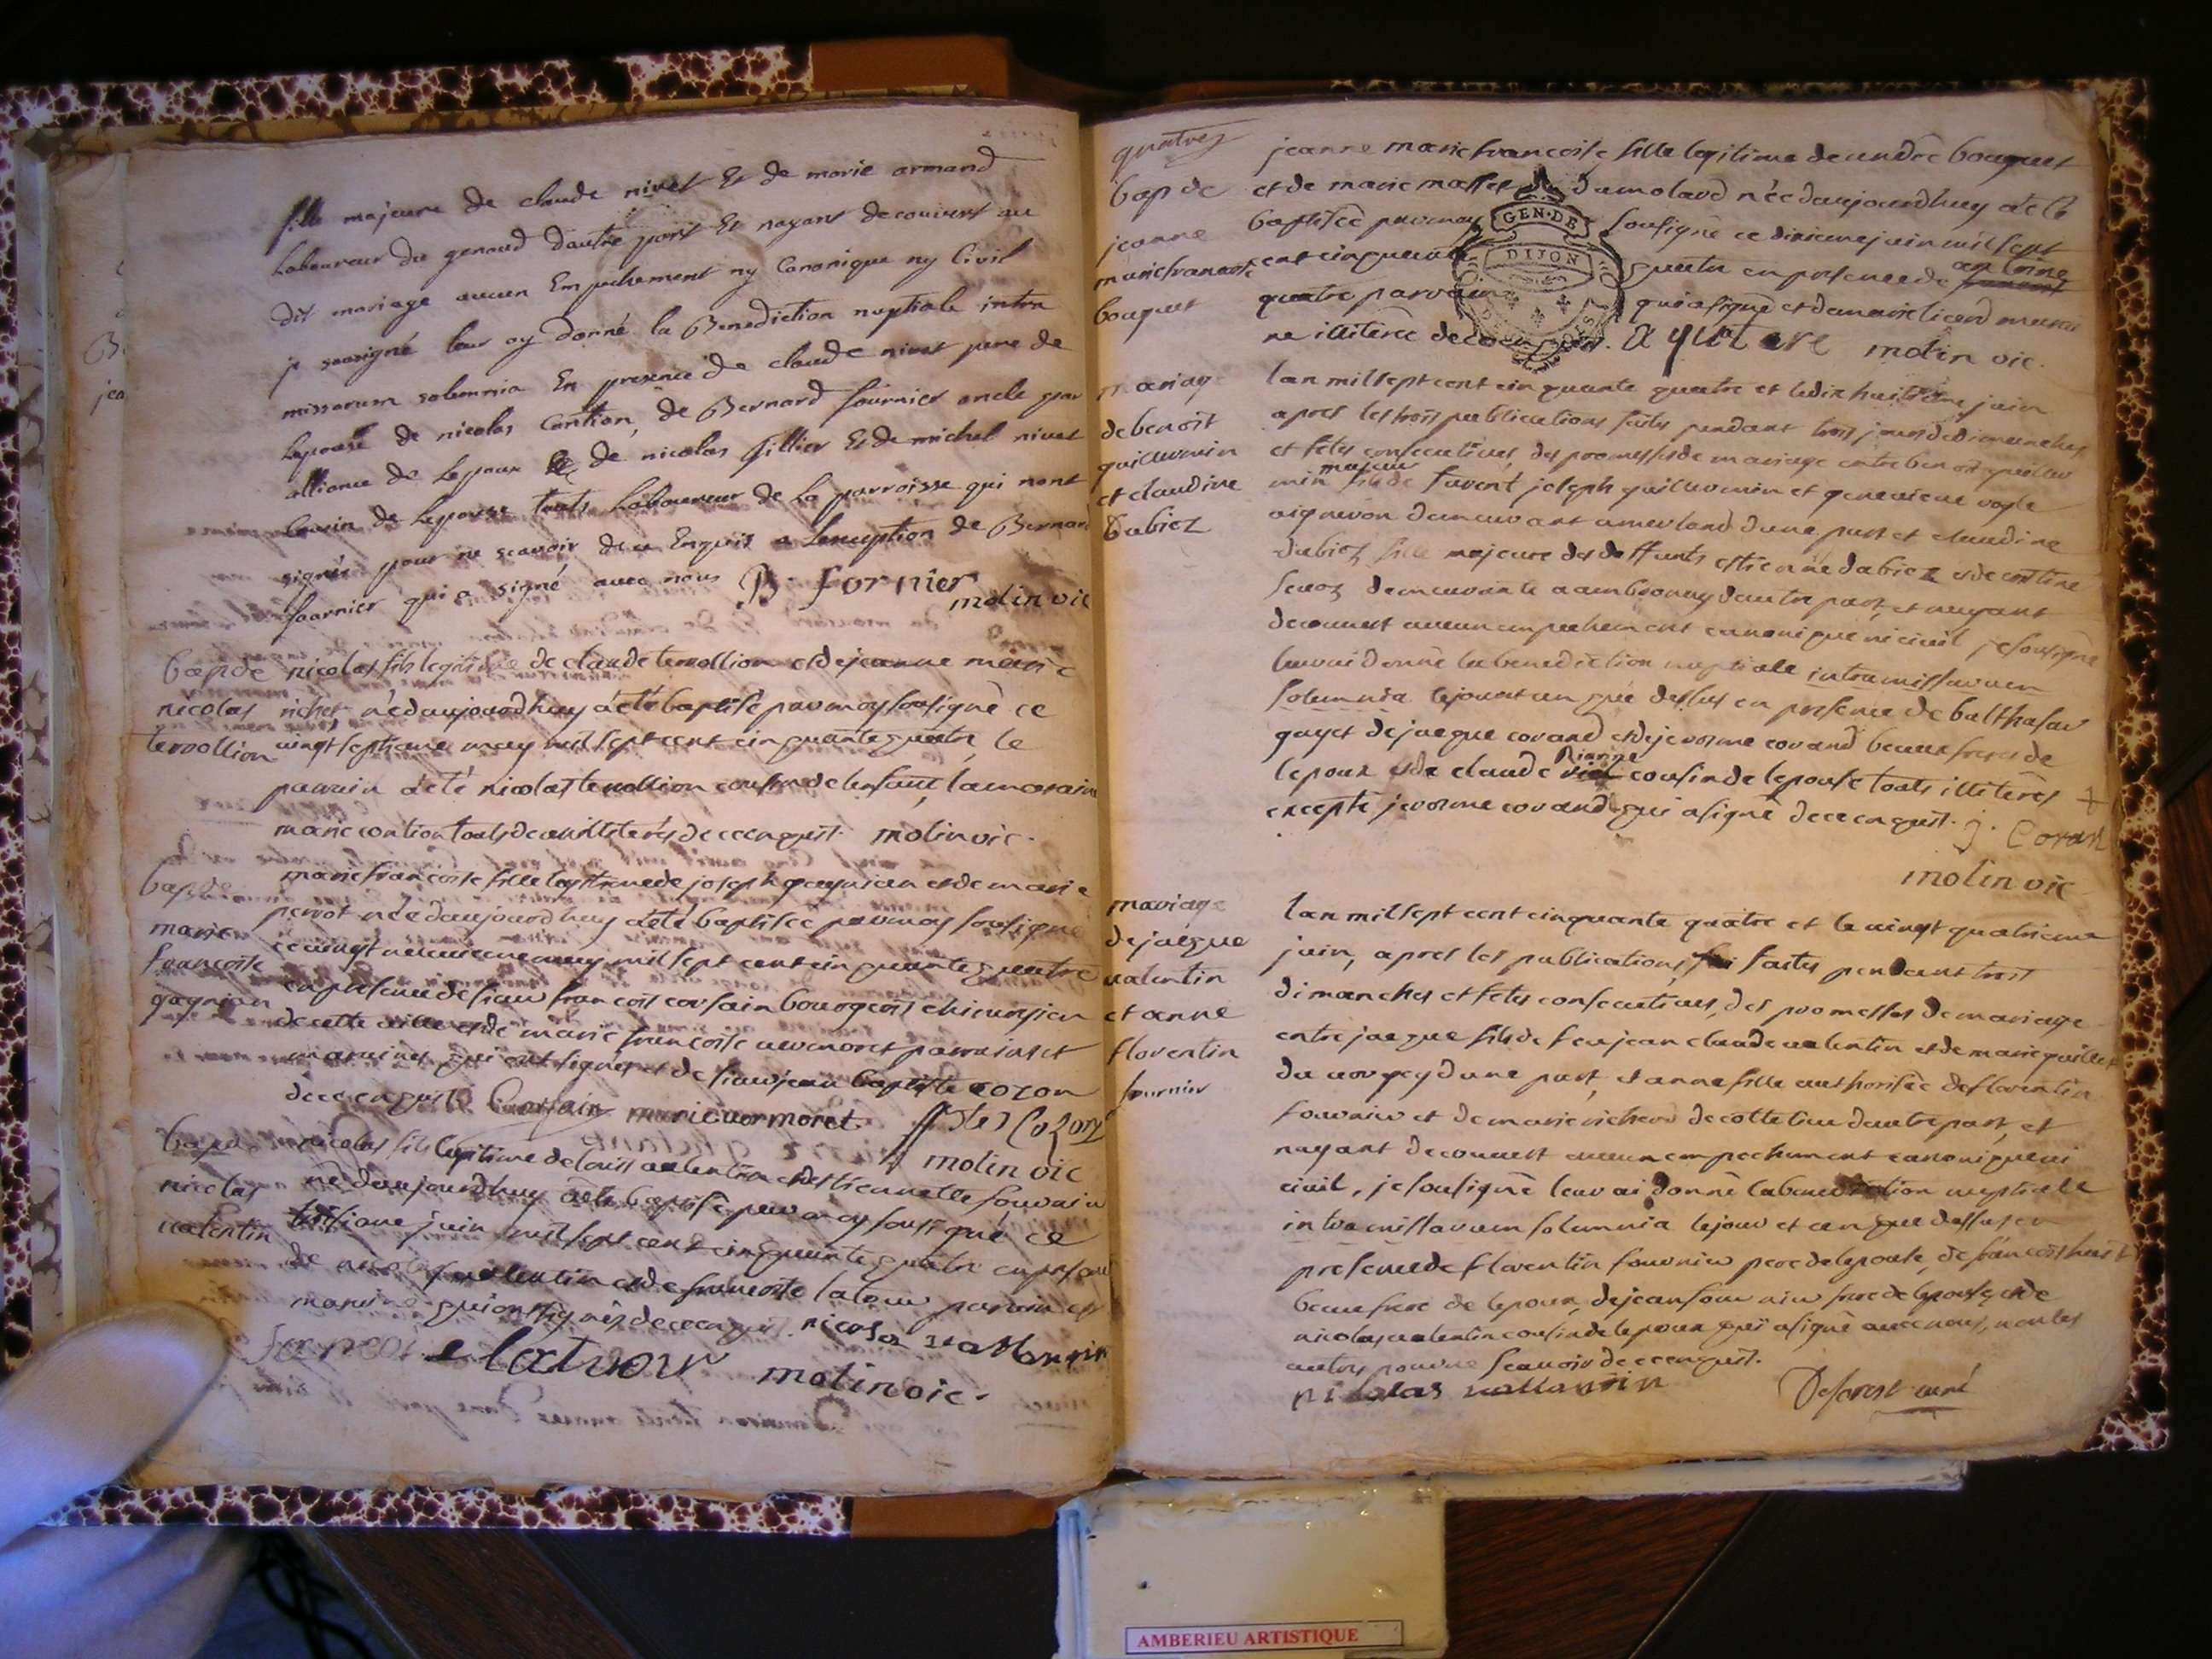 fille majeure de claude nivet Et de marie armand
Laboureur du genoud dautre part Et nayant decouvert au
dit mariage aucun Empechement ny Canonique ny Civil
je sousigné leur ay donné la Benediction nuptiale intra
missarum solemnia En presence de claude nivet pere de
Lepouse de nicolas Contion, de Bernard fournier oncle par
alliance de Lepoux de nicolas fillier Et de michel nivet
Cousin de Lepouse touts Laboureur de La parroisse qui nont
signés pour ne scavoir de ce Enquis a Lexception de Bernard
fournier qui a signé avec nous B. fornier
molin vic
bap de
nicolas
tenollion
nicolas fils legitime de claude tenollion et de jeanne marie
richet né daujourdhuy a été baptisé par moy sousigné ce
vingt septieme may mil sept cent cinquante quatre, le
parrain a été nicolas tenollion cousin de lenfant, la maraine
marie contion touts deux illiterés de ce enquist. molin vic.
bap de
marie
francoise
gagnian
marie francoise fille legitime de joseph gagnian et de marie
perrot née daujourdhuy a été baptisée par moy sousigné
ce vingt neuvieme may mil sept cent cinquante quatre
en presence de sieur francois coussain bourgeois chirurgien
de cette ville et de marie francoise vermoret parrain et
maraine qui ont signés et de sieur jean baptiste cozon
de ce enquist. Coussain marie vermoret
molin vic
bap de
nicolas
valentin
nicolas fils legitime de louis valentin et destiennette fournier
né daujourdhuy a été baptisé par moy sousigné ce
troisieme juin mil sept cent cinquante quatre en presence
de nicolas valentin et de francoise latour parrain et
maraine qui ont signés de ce enquis. nicolas vallantin
latuour molin vic.
quatres
bap de
jeanne
marie francoise
bouquet
jeanne marie francoise fille legitime de andré bouquet
et de marie masset dumolard née daujourdhuy a été
baptisée par moy sousigné ce dixieme juin mil sept
cent cinquante quatre en presence de antoine
quatre parrain qui a signé et de marie licerd marai
ne illiterée de ce enquist. a quatere molin vic.
GEN·DE
DIJON
mariage
de benoit
guillermin
et claudine
Dubiez
lan mil sept cent cinquante quatre et le dix huitieme juin
apres les trois publications faites pendant trois jours de dimanches
et fetes consecutives, des promesses de mariage entre benoit guiller
min majeur fils de furent joseph guillermin et genevieve vogle
aignevon demeurant a meyland dune part et claudine
dubiez fille majeure des deffunts estienne dubiez et de
demeurante a ambronay dautre part, et nayant
decouvert aucun empechement canonique ni civil je sousigné
leur ai donné la benediction nuptiale intra missarum
solemnia le jour et an que dessus en presence de balthasar
gayet de jacque corand et de jerosme corand beaux freres de
lepoux et de claude Dianne cousin de lepouse touts illiterés +
excepté jerosme corand qui a signé de ce enquist. j. Corant
molin vic
mariage
de jacque
valentin
et anne
florentin
fournier
lan mil sept cent cinquante quatre et le vingt quatrieme
juin, apres les publications faites pendant trois
dimanches et fetes consecutives, des promesses de mariage
entre jacque fils de feu jean claude valentin et de marie guillet
du dune part, et anne fille authorisée de florentin
fournier et de marie richerd de cottetieu dautre part, et
nayant decouvert aucun empechement canonique ni
civil, je sousigné leur ai donné la benediction nuptiale
intra missarum solemnia le jour et an que dessus en
presence de florentin fournier pere de lepouse, de francois
beau frere de lepoux, de jean fournier frere de lepouse, et de
nicolas valentin cousin de lepoux qui a signé avec nous, non les
autres pour ne scavoir de ce enquist.
nicolas vallantin Deforest curé
AMBERIEU ARTISTIQUE